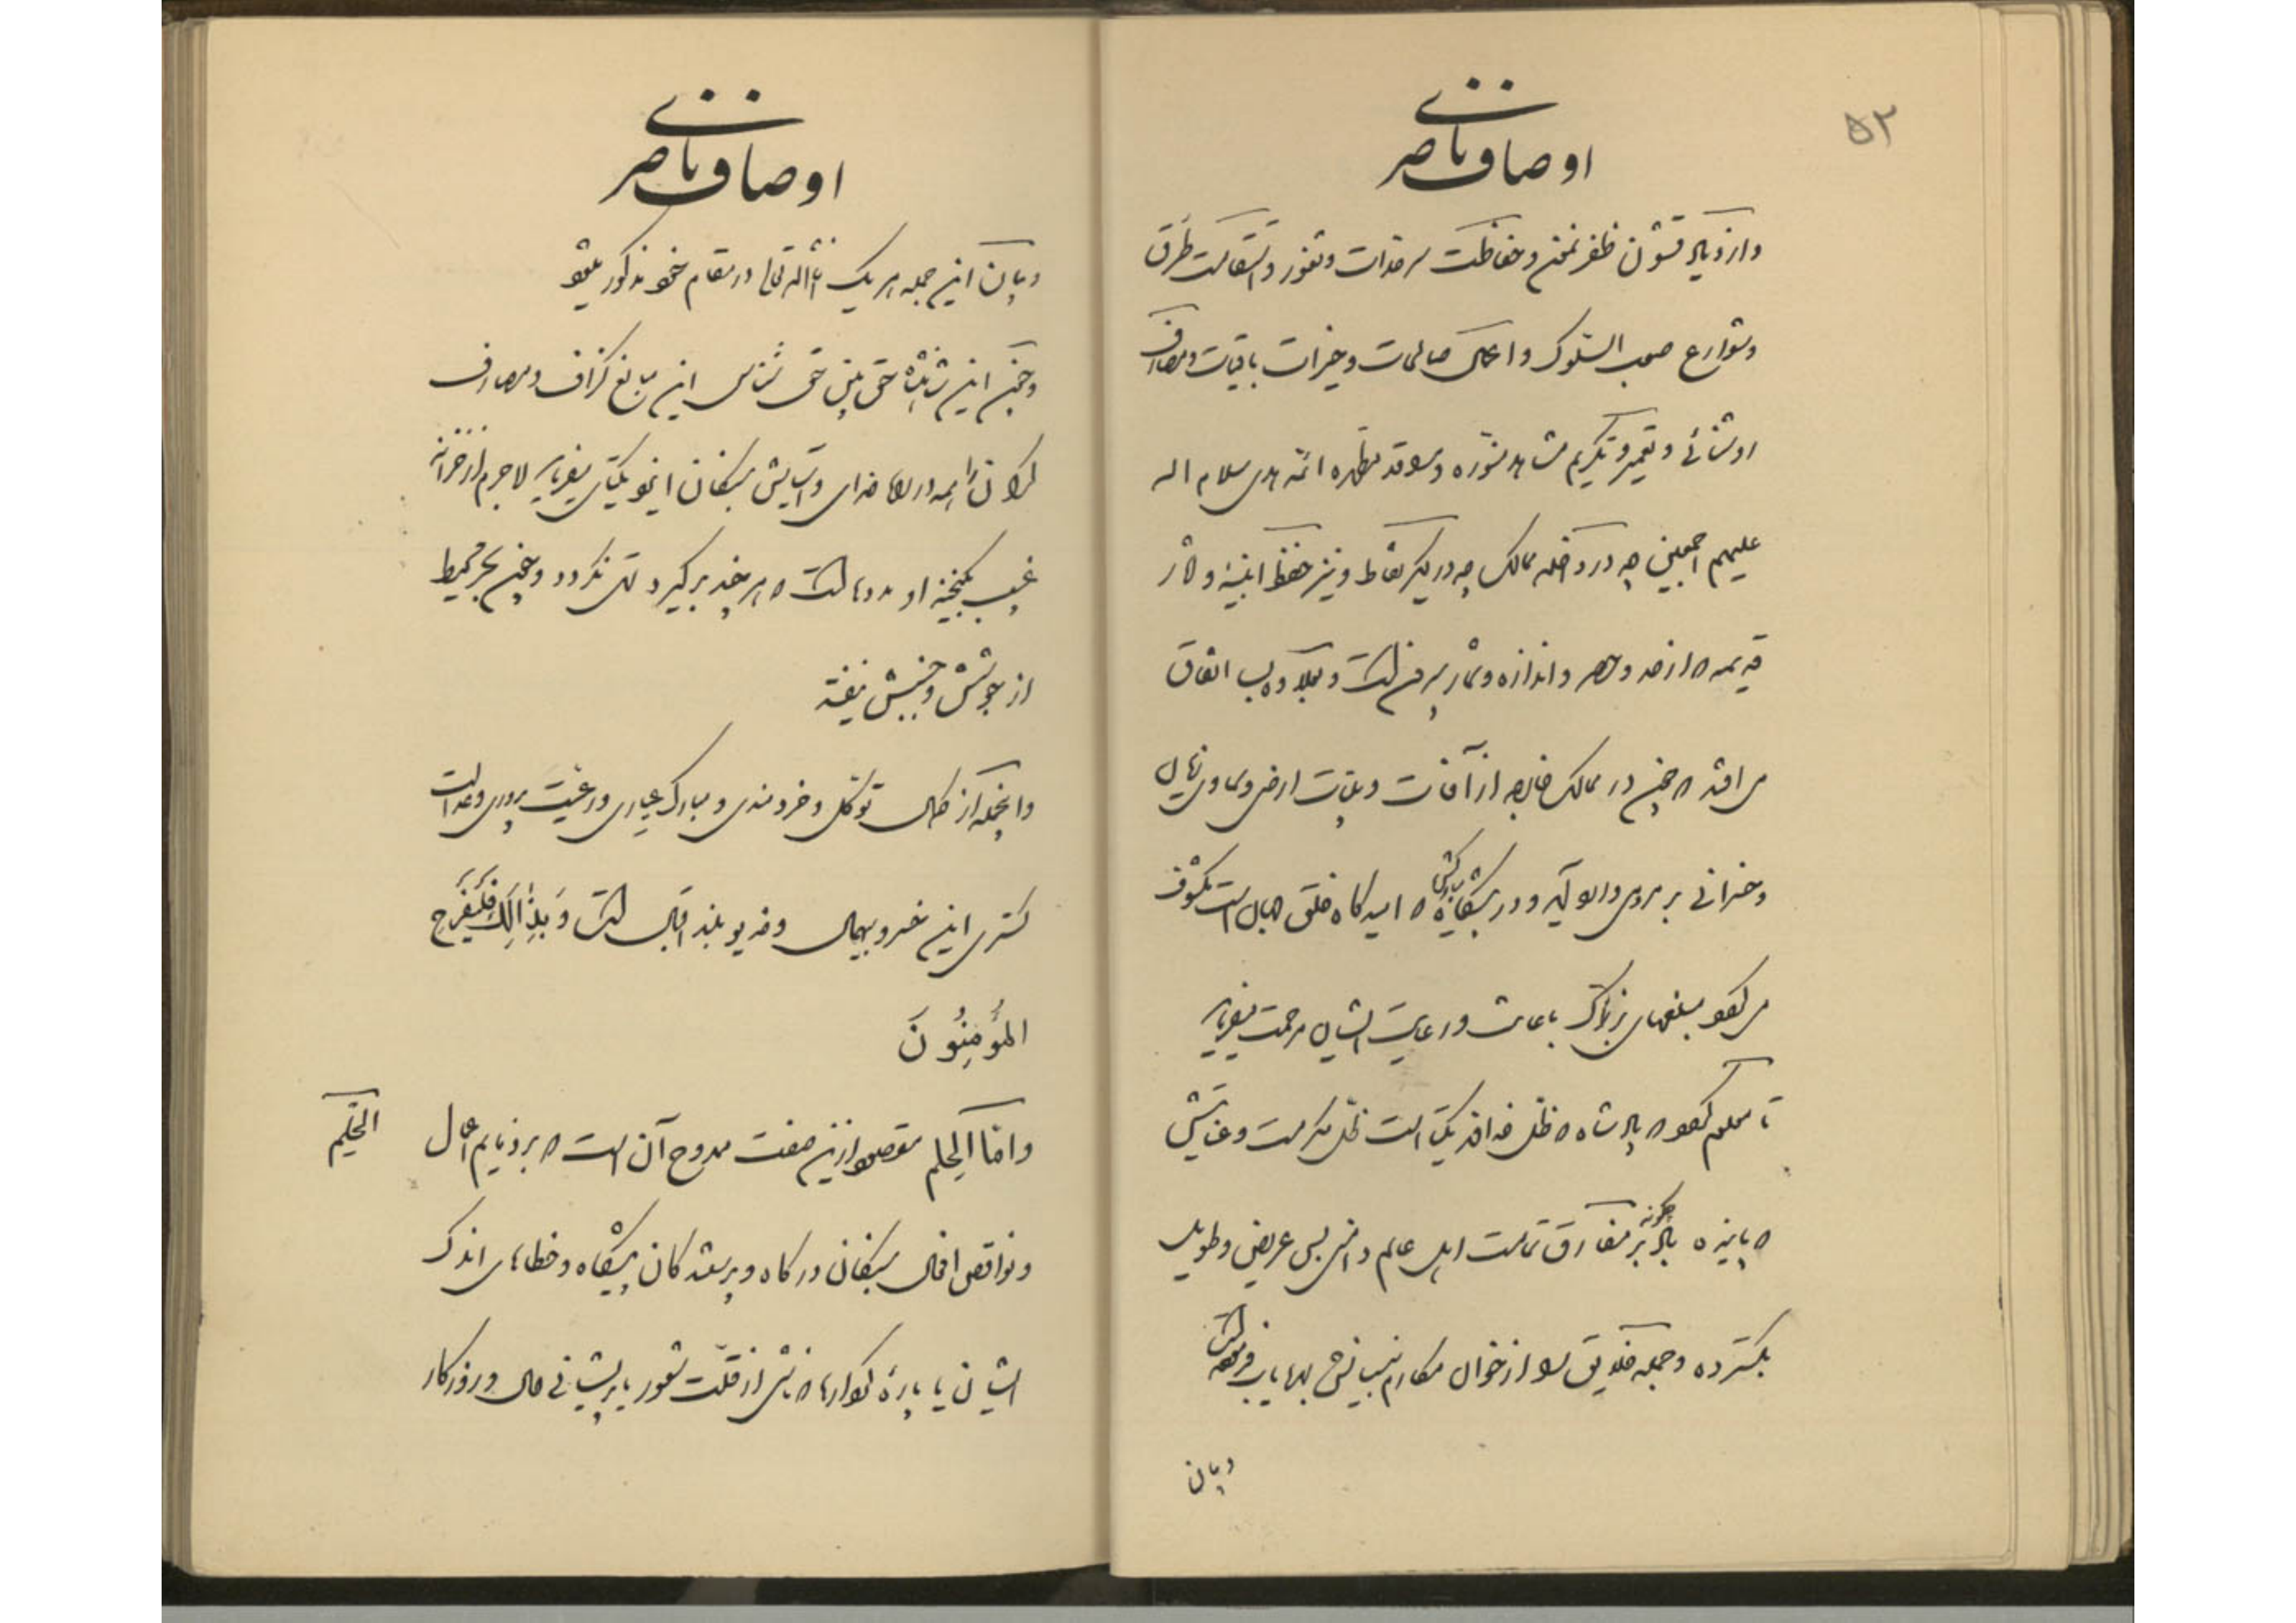 ۵۳
اوصاف ناصری
وازدیاد قشون ظفرنمون و حفاظت سرحدات و ثغور و استقامت طرق
و شوارع صعب السلوک و اعمال صالحات و خیرات باقیات و مصارف
روشنائی و تعمیر و تکریم مشاهد منوره و مراقد مطهره ائمه هدی سلام اله
علیهم اجمعین چه در داخله ممالک چه در دیگر نقاط و نیز حفظ ابنیه و آثار
قدیمه که از حد و حصر و اندازه و شمار بیرون است و بعلاوه بسا اتفاق
می افتد که چون در ممالک خارجه از آفات و بلیات ارضی و سماوی زیان
و خسرانی بر مردمی وارد آید و در پیشگاه که امیدگاه خلق جهان است مکشوف
می گردد مبلغهای بزرگ باعانت و رعایت ایشان مرحمت میفرماید
تا معلوم گردد که پادشاه که ظل خداوند یکتا است ظل مکرمت و عنایتش
که پاینده باد بر مفارق تمامت اهل عالم دامنی بس عریض و طویل
بگسترده و جمله خلایق را از خوان مکارم نصیبی بهره یاب فرموده است
و بیان
اوصاف ناصری
و بیان این جمله هر یک انشاء اله تعالی در مقام خود مذکور میشود
و چون این شاهنشاه حق بین حق شناس این مبالغ گزاف و مصارف
گران را همه در رضای خدای و آسایش بندگان ایزد یکتا میفرماید لاجرم از خزانه
غیب بگنجینه او مددهاست که هر چند برگیرد تهی نگردد و چون بحر محیط
از جوشش و جنبش نیفتد
و اینجمله از کمال توکل و خردمندی و مبارک عیاری و رعیت پروری و عدالت
گستری این خسرو بیهمال و خدیو بلند اقبال است وَ بِذٰالِکَ فَلْیَفْرَحِ
المُؤمِنُونَ
و امّا الحِلم مقصود ازین صفت ممدوح آن است که بر ذمایم اعمال
الحِلم
و نواقص افعال بندگان درگاه و پرستندگان پیشگاه و خطاهای اندک
ایشان یا پارهٔ کردارها که ناشی از قلّت شعور یا پریشانی حال و روزگار